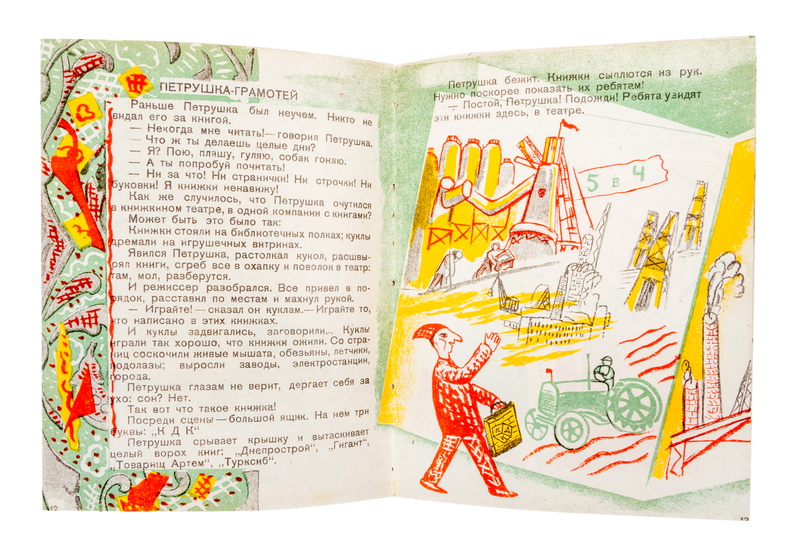 ПЕТРУШКА-ГРАМОТЕЙ
Раньше Петрушка был неучем. Никто не
видал его за книгой.
— Некогда мне читать!—говорил Петрушка.
— Что ж ты делаешь целые дни?
— Я? Пою, пляшу, гуляю, собак гоняю.
— А ты попробуй почитать!
— Ни за что! Ни странички! Ни строчки! Ни
буковки! Я книжки ненавижу!
Как же случилось, что Петрушка очутился
в книжкином театре, в одной компании с книгами?
Может быть это было так:
Книжки стояли на библиотечных полках; куклы
дремали на игрушечных витринах.
Явился Петрушка, растолкал кукол, расшвы-
рял книги, сгреб все в охапку и поволок в театр:
там, мол, разберутся.
И режиссер разобрался. Все привел в по-
рядок, расставил по местам и махнул рукой.
— Играйте!—сказал он куклам.—Играйте то,
что написано в этих книжках.
И куклы задвигались, заговорили... Куклы
играли так хорошо, что книжки ожили. Со стра-
ниц соскочили живые мышата, обезьяны, летчики,
водолазы; выросли заводы, электростанции,
города.
Петрушка глазам не верит, дергает себя за
ухо: сон? Нет.
Так вот что такое книжка!
Посреди сцены—большой ящик. На нем три
буквы: „К Д К“
Петрушка срывает крышку и вытаскивает
целый ворох книг: „Днепрострой“, „Гигант“,
„Товарищ Артем“, „Турксиб“.
12
Петрушка бежит. Книжки сыплются из рук.
Нужно поскорее показать их ребятам!
— Постой, Петрушка! Подожди! Ребята увидят
эти книжки здесь, в театре.
5 в 4
13